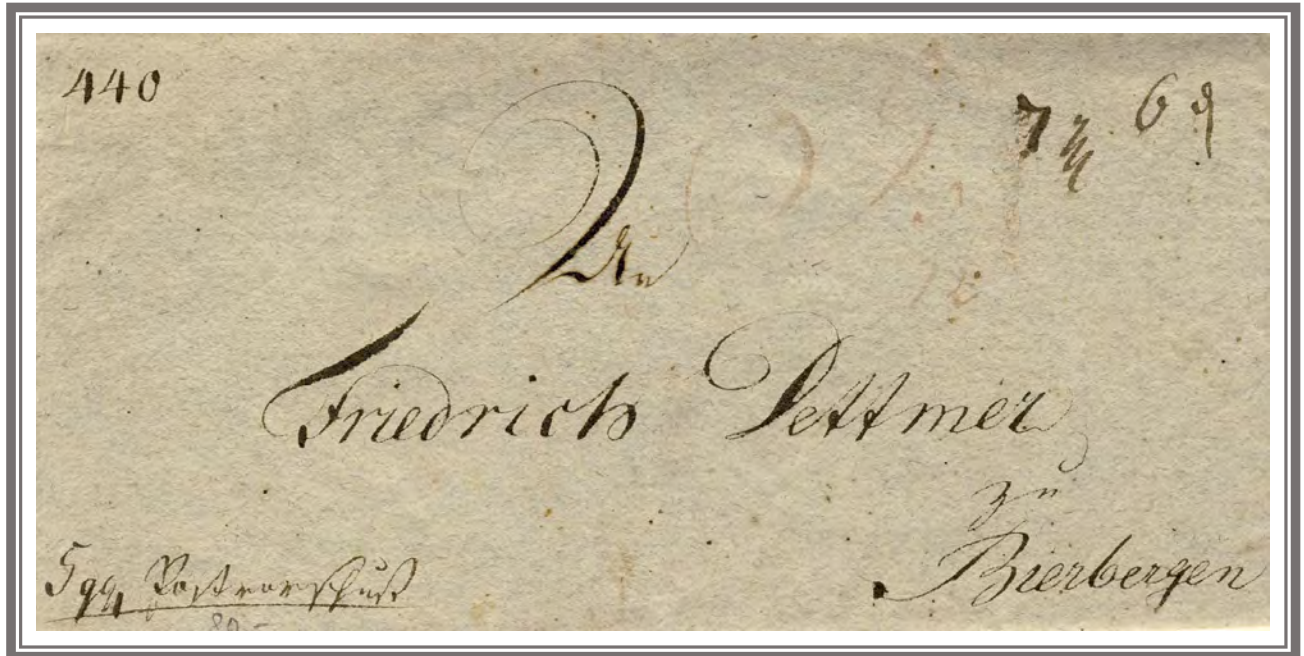 440
7 6
An
Friedrich Dettmer
zu
Bierbergen
5 ggr Postvorschuß